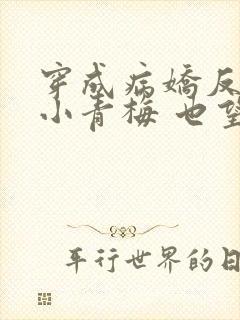 穿成病嬌反
小青梅 也望
平行世界的日